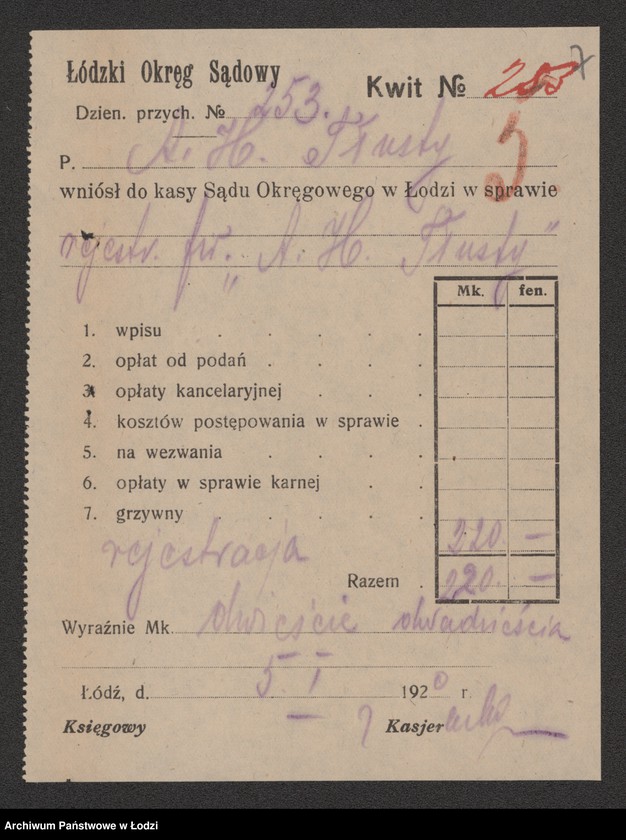 7
Łódzki Okręg Sądowy
Kwit №
Dzien. przych. № 253.
5.
P. A. H. Tłusty
wniósł do kasy Sądu Okręgowego w Łodzi w sprawie
rejestr. fir. „A. H. Tłusty”
Mk. fen.
1. wpisu . . . . .
2. opłat od podań . . . .
3. opłaty kancelaryjnej . . .
4. kosztów postępowania w sprawie .
5. na wezwania . . . .
6. opłaty w sprawie karnej . .
7. grzywny . . . .
rejestracja 220 —
Razem . 220. —
Wyraźnie Mk. dwieście dwadzieścia
Łódź, d. 5. I 1920 r.
Księgowy Kasjer
Archiwum Państwowe w Łodzi